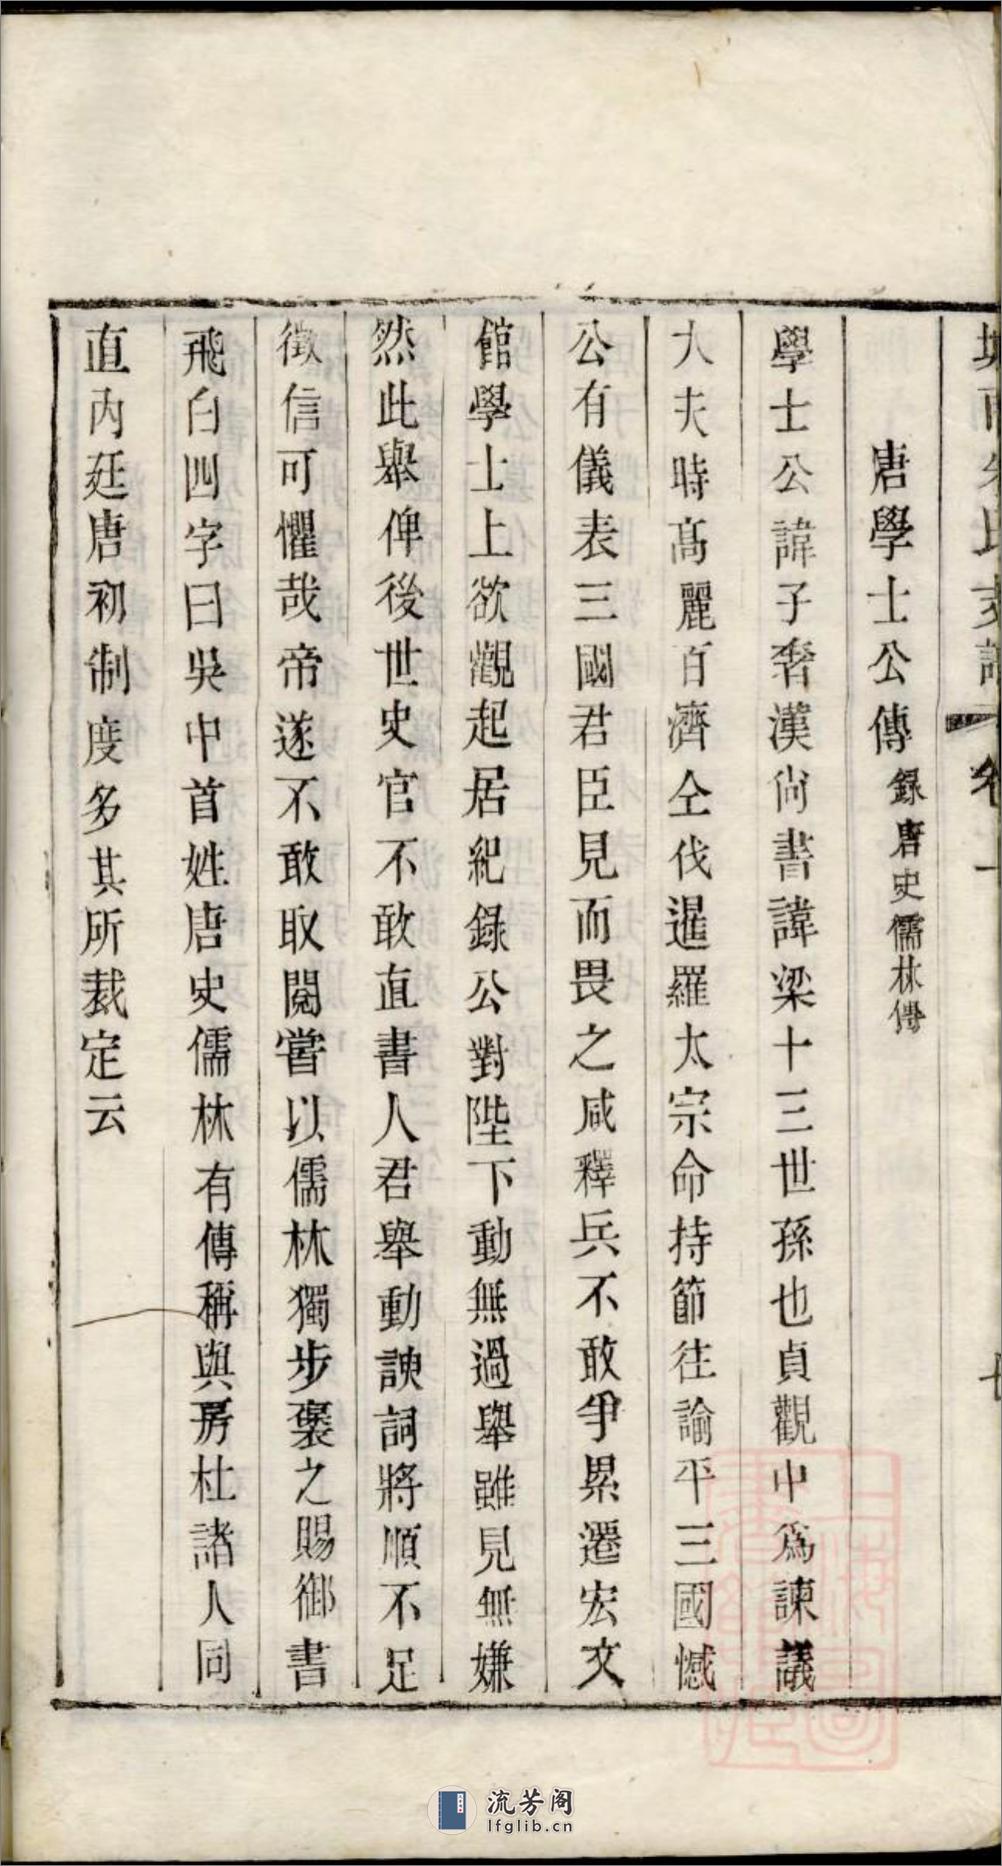 唐學士公傳 錄唐史儒林傳
學士公諱子奢漢尙書諱梁十三世孫也貞觀中爲諫議
大夫時高麗百濟仝伐暹羅太宗命持節往諭平三國憾
公有儀表三國君臣見而畏之咸釋兵不敢爭累遷宏文
館學士上欲觀起居紀錄公對陛下動無過舉雖見無嫌
然此舉俾後世史官不敢直書人君舉動諛詞將順不足
徵信可懼哉帝遂不敢取閱嘗以儒林獨步褒之賜御書
飛白四字曰吳中首姓唐史儒林有傳稱與房杜諸人同
直內廷唐初制度多其所裁定云
流芳阁
lfglib.cn